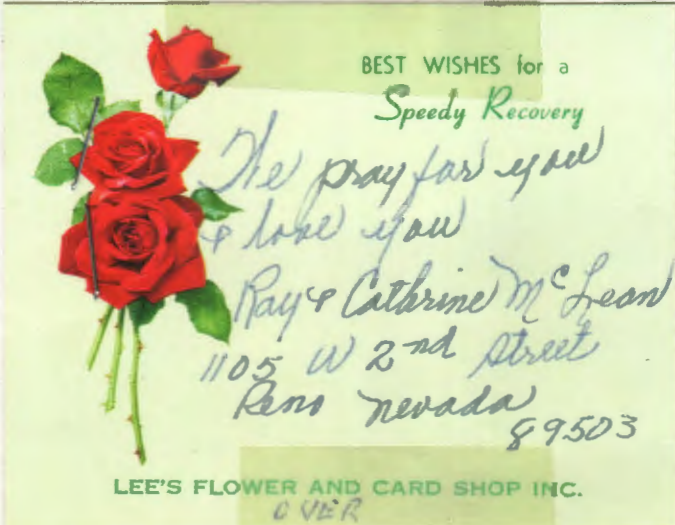 BEST WISHES for a
Speedy Recovery
We pray for you
& love you
Ray & Cathrine McLean
1105 W 2nd Street
Reno nevada
89503
LEE'S FLOWER AND CARD SHOP INC.
OVER